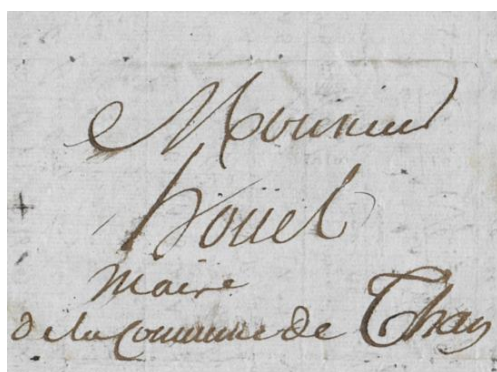 Monsieur
hoüel
maire
de la Commune de Than